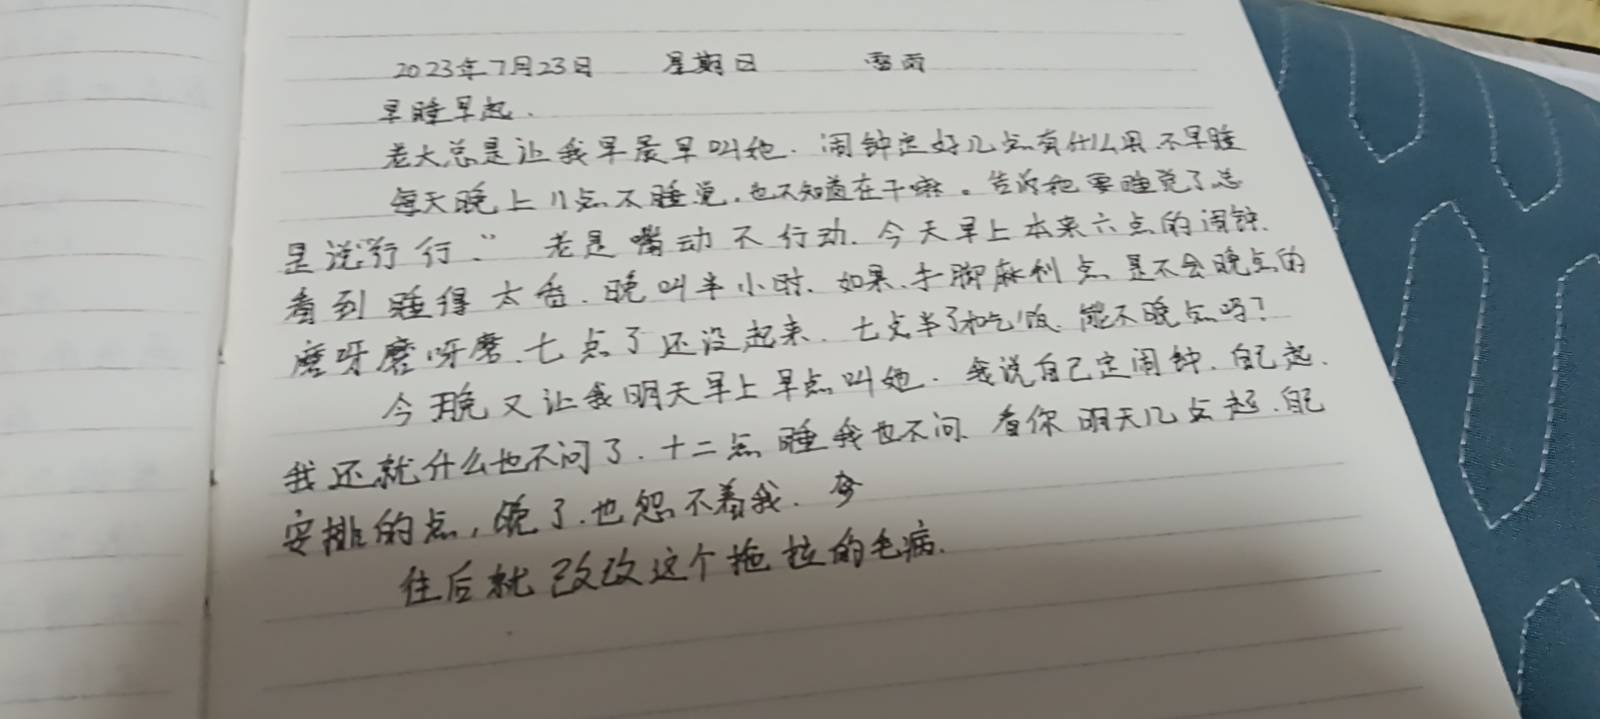 2023年7月23日 星期日 雷雨
早睡早起.
老大总是让我早晨早叫她. 闹钟定好几点有什么用.不早睡
每天晚上11点不睡觉.也不知道在干嘛。告诉她要睡觉了总
是说"行行" 老是嘴动不行动. 今天早上本来六点的闹钟.
看到睡得太香.晚叫半小时. 如果.手脚麻利点.是不会晚点的
磨呀磨呀磨.七点了还没起来. 七点半了才吃饭.能不晚点吗?
今晚又让我明天早上早点叫她. 我说自己定闹钟.自己起.
我还就什么也不问了.十二点睡我也不问.看你明天几点起.自己
安排的点,晚了.也怨不着我.
往后就改改这个拖拉的毛病.